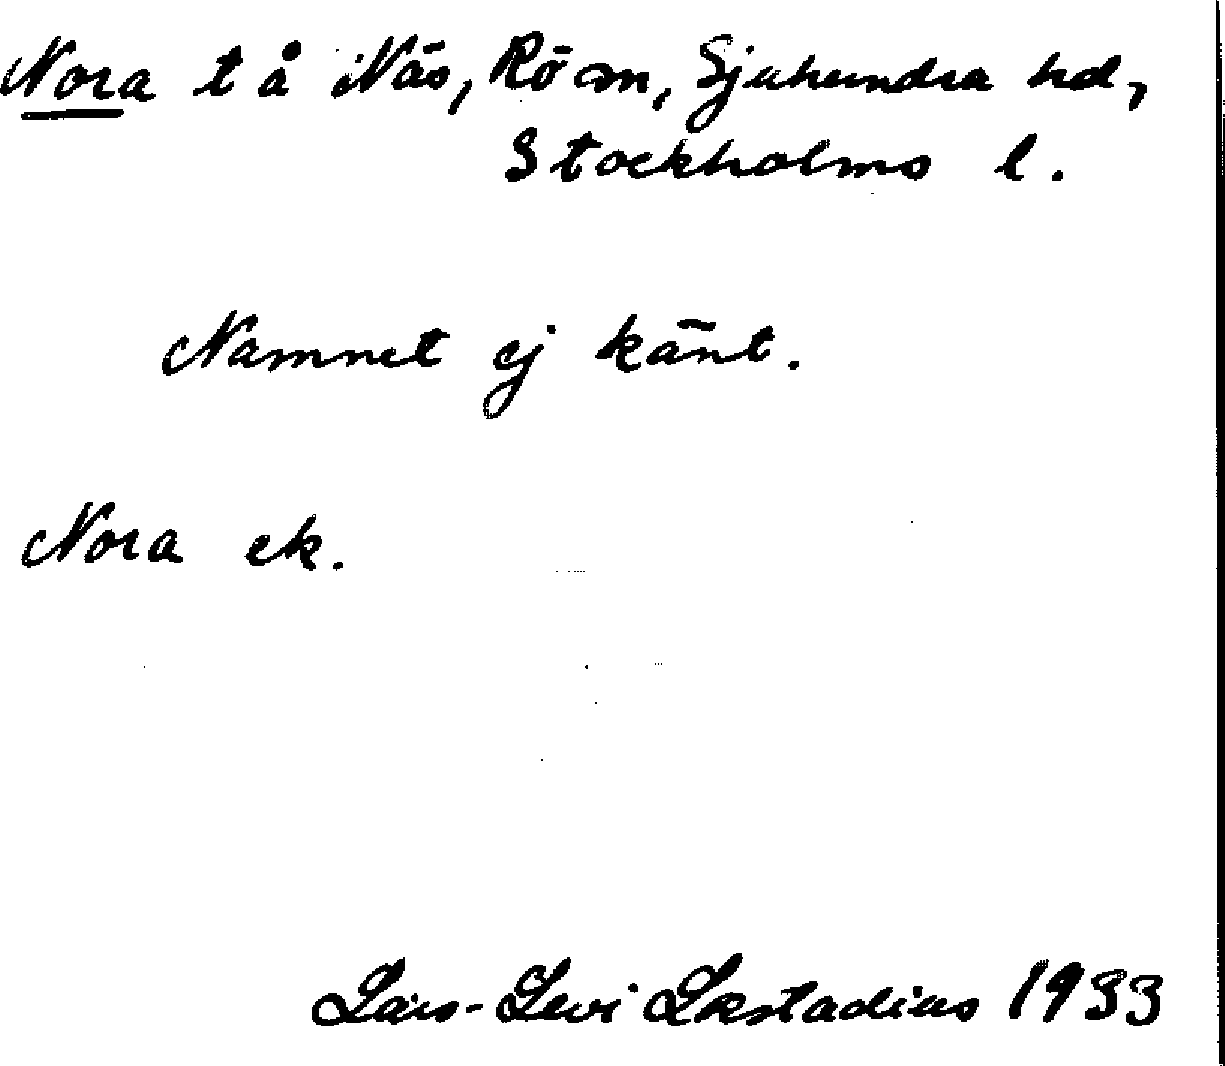 Nora t å Näs, Rö sn, Sjuhundra hd,
Stockholms l.
Namnet ej känt.
Nora ek.
Lars-Levi Læstadius 1933